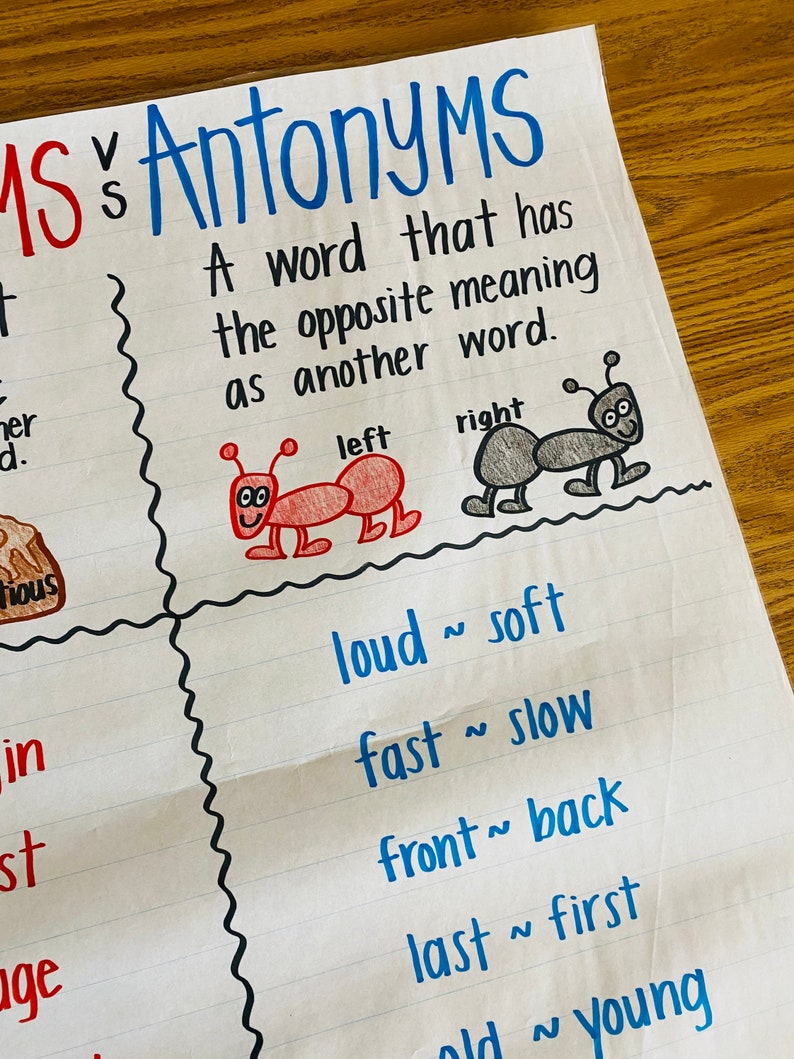 MS vs Antonyms
A word that has
the opposite meaning
as another word.
left
right
tious
loud ~ soft
fast ~ slow
front ~ back
last ~ first
old ~ young
her
d.
in
st
age